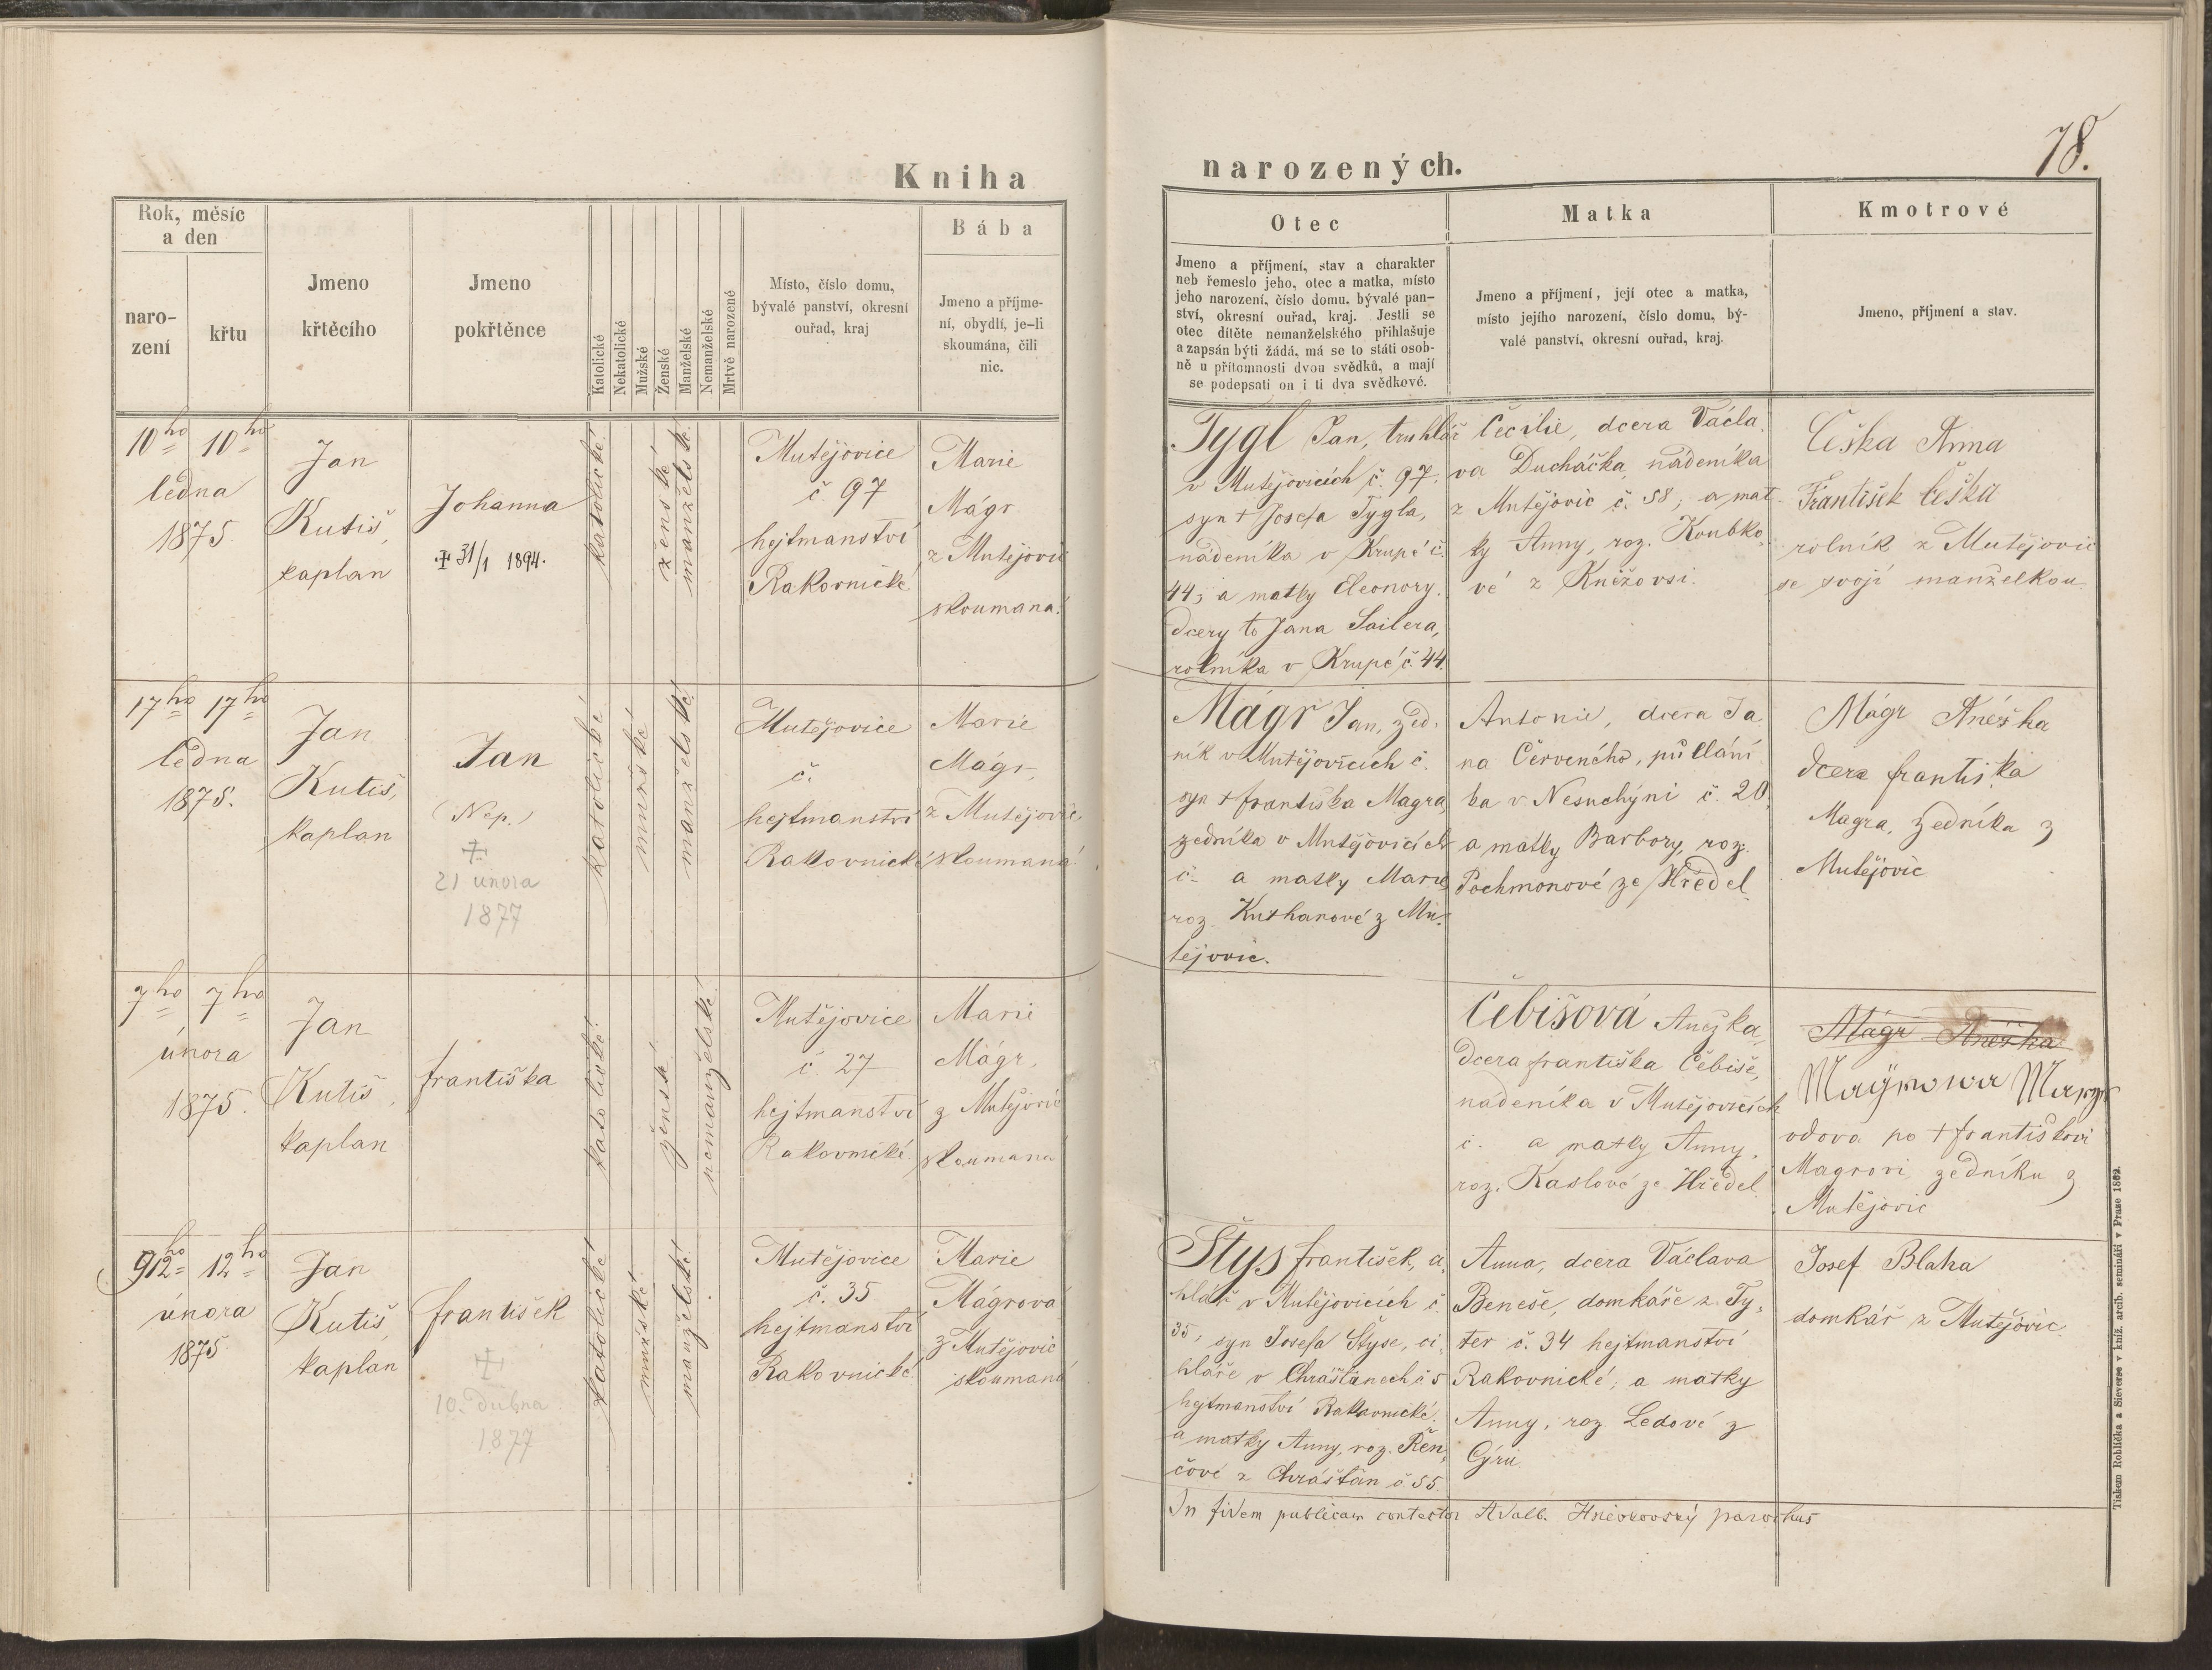 Kniha
Rok, měsíc
a den
naro-
zení
křtu
Jmeno
křtěcího
Jmeno
pokřtěnce
Katolické
Nekatolické
Mužské
Ženské
Manželské
Nemanželské
Mrtvě narozené
Místo, číslo domu,
bývalé panství, okresní
ouřad, kraj
Bába
Jmeno a příjme-
ní, obydlí, je-li
skoumána, čili
nic.
10ho 10ho
ledna
1875
Jan
Kutiš,
kaplan
Johanna
31/1 1894.
katolické
ženské
manželské
Mutějovice
č. 97
hejtmanství
Rakovnické
Marie
Mágr
z Mutějovic
skoumana.
17ho 17ho
ledna
1875.
Jan
Kutiš,
kaplan
Jan
(Nep.)
21 února
1877
katolické
mužské
manželské
Mutějovice
č.
hejtmanství
Rakovnické
Marie
Mágr,
z Mutějovic,
skoumaná
7ho 7ho
února
1875.
Jan
Kutiš,
kaplan
františka
katolické
ženské
nemanželské
Mutějovice
č 27
hejtmanství
Rakovnické
Marie
Mágr,
z Mutějovic
skoumana
12ho 12ho
února
1875
Jan
Kutiš
kaplan
františek
10. dubna
1877
katolické
mužské
manželské
Mutějovice
č. 35
hejtmanství
Rakovnické
Marie
Mágrova
z Mutějovic
skoumaná
narozených.
78.
Otec
Jmeno a příjmení, stav a charakter
neb řemeslo jeho, otec a matka, místo
jeho narození, číslo domu, bývalé pan-
ství, okresní ouřad, kraj. Jestli se
otec dítěte nemanželského přihlašuje
a zapsán býti žádá, má se to státi osob-
ně u přítomnosti dvou svědků, a mají
se podepsati on i ti dva svědkové.
Matka
Jmeno a příjmení, její otec a matka,
místo jejího narození, číslo domu, bý-
valé panství, okresní ouřad, kraj.
Kmotrové
Jmeno, příjmení a stav.
Tygl Jan, truhlář
v Mutějovicích č. 97.
syn + Josefa Tygla,
nádeníka v Krupé č.
44; a matky Eleonory,
dcery Jana Sailera,
rolníka v Krupé č. 44.
Čecilie, dcera Václa-
va Ducháčka, nádeníka
z Mutějovic č. 58, a mat-
ky Anny, roz. Koubko-
vé z Kněžovsi.
Češka Anna
František Češka
rolník z Mutějovic
se svojí manželkou
Mágr Jan, zed-
ník v Mutějovicích č.
syn + františka Magra,
zedníka v Mutějovicích
č. a matky Marie
roz. Kuthanové z Mu-
tějovic.
Antonie, dcera Ja-
na Červeného, půllání-
ka v Nesuchýni č. 20.
a matky Barbory, roz.
Pochmonové ze Hředel
Mágr Anéžka
dcera františka
Magra, zedníka z
Mutějovic
Čebišová Anežka,
dcera františka Čebiše,
nádeníka v Mutějovicích
č. a matky Anny,
roz. Kaslové ze Hředel.
Mágr Anéžka
vdova po + františkovi
Magrovi, zedníku z
Mutějovic
Štys františek, ci-
hlář v Mutějovicích č.
35, syn Josefa Štyse, ci-
hláře v Chrášťanech č 5
hejtmanství Rakovnické,
a matky Anny, roz. Řen-
čové z Chrášťan č. 55
Anna, dcera Václava
Beneše, domkáře z Ty-
ter č. 34 hejtmanství
Rakovnické; a matky
Anny, roz. Ledové z
Josef Blaha
domkář z Mutějovic.
In fidem publicam contestor Hněvkovský parochus
Tiskem Rohlíčka a Sieverse v kníž. arcib. semináři v Praze 1862.